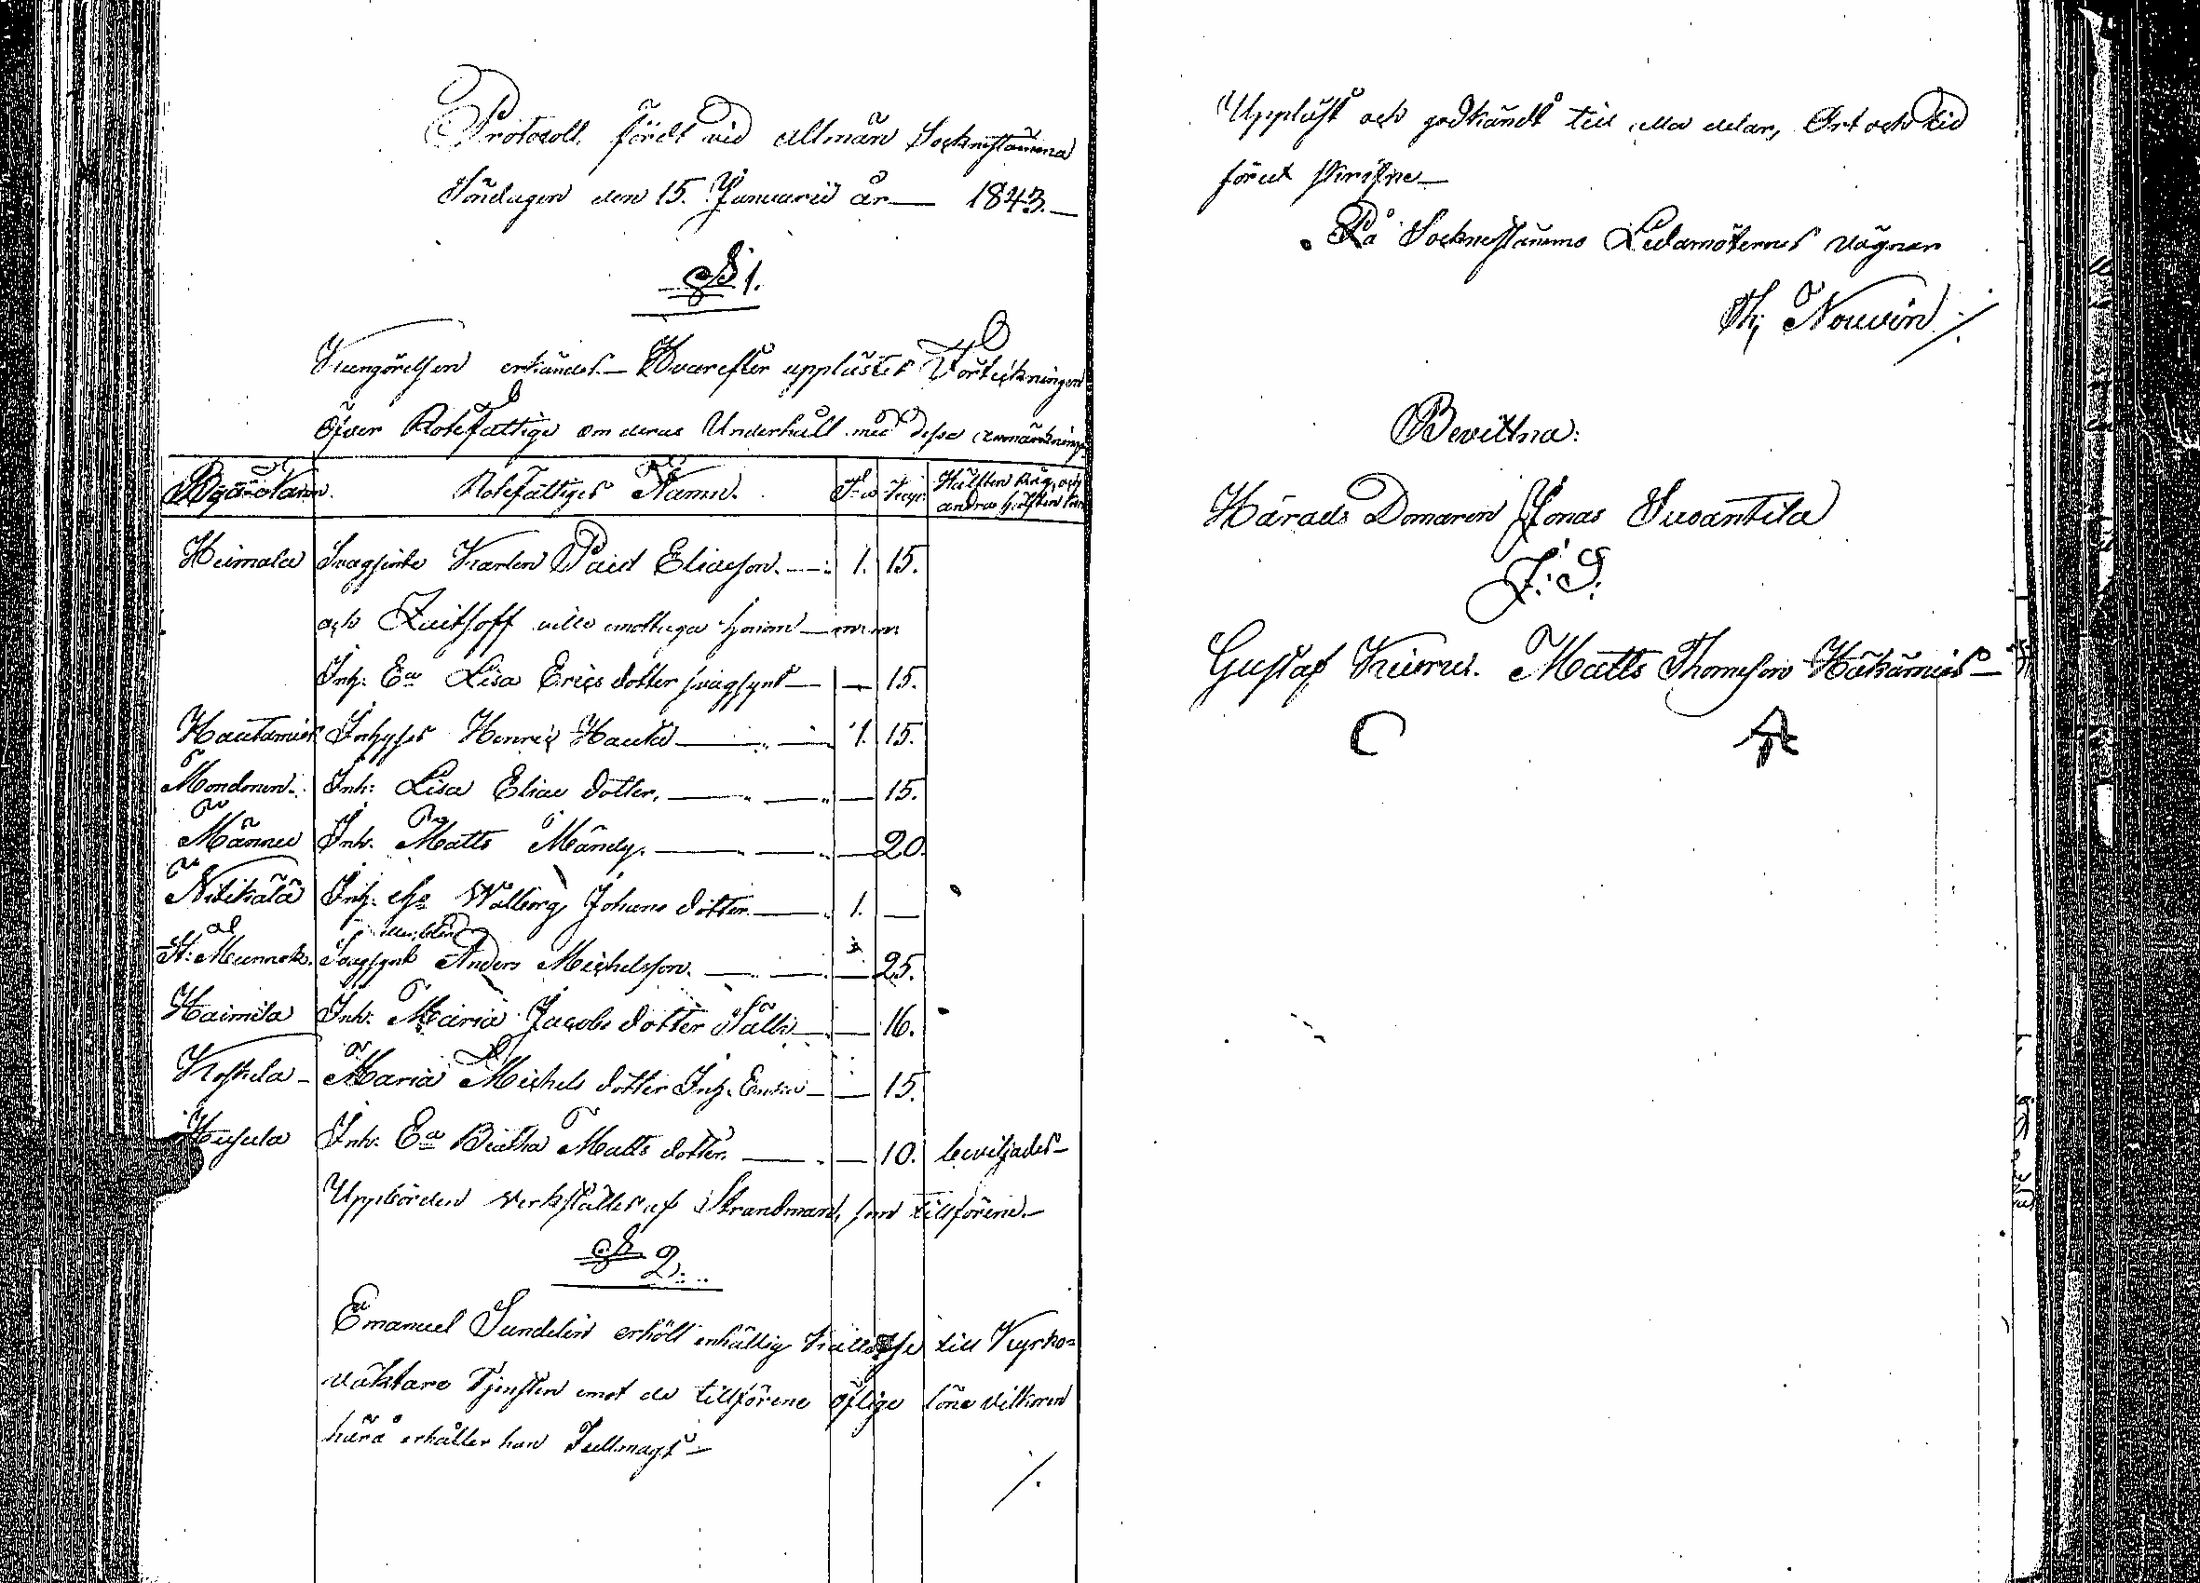 Protocoll, fördt vid Allmän Sockenstämma
Söndagen den 15. Januarii år — 1843. —
§ 1.
Kungörelsen erkändes. — Hvarefter upplästes Förteckningen
Öfver Rotefattige om deras Underhåll med dessa anmärkningar
Rotefattiges Namn. Hälften Råg, och
andra hälften
Heimala Svagsinte Karlen Påid Eliaeson. — 1. 15.
och Zaithoff ville emottaga honom —
Inh: Ea Lisa Erics dotter svagsynt — — 15.
Hautamies Inhyses Henric Hauta — 1. 15.
Inh: Lisa Elias dotter. — — 15.
Männu Inh. Matts Mändy. — — 20.
Nihikälä Inh. Wallborg Johans dotter. — 1. —
Svagsynt Anders Michelsson. — — 25.
Haimila Inh: Maria Jacobs dotter Sälli — — 16.
Koskela — Maria Michels dotter Inh. Enka — — 15.
Husula Inh: Ea Beatha Matts dotter. — — 10. beviljades —
Uppbörden verkställes af Strandman, som tillförene. —
§ 2.
Emanuel Sundelin erhöll enhällig kallelse till Kyrko=
väktare Tjensten emot de tillförene öflige löne vilkoren
härå erhåller han Fullmagt —
Uppläst och godkändt till alla delar, Ort och tid
förut skrifne —
På Sockenstämmo Ledamöternes vägnar
Th; Nouvin
Bevittna:
Härads Domaren Jonas Suoantila
J. S.
Gustaf Kuirus. Matts Thomeson Hökämies —